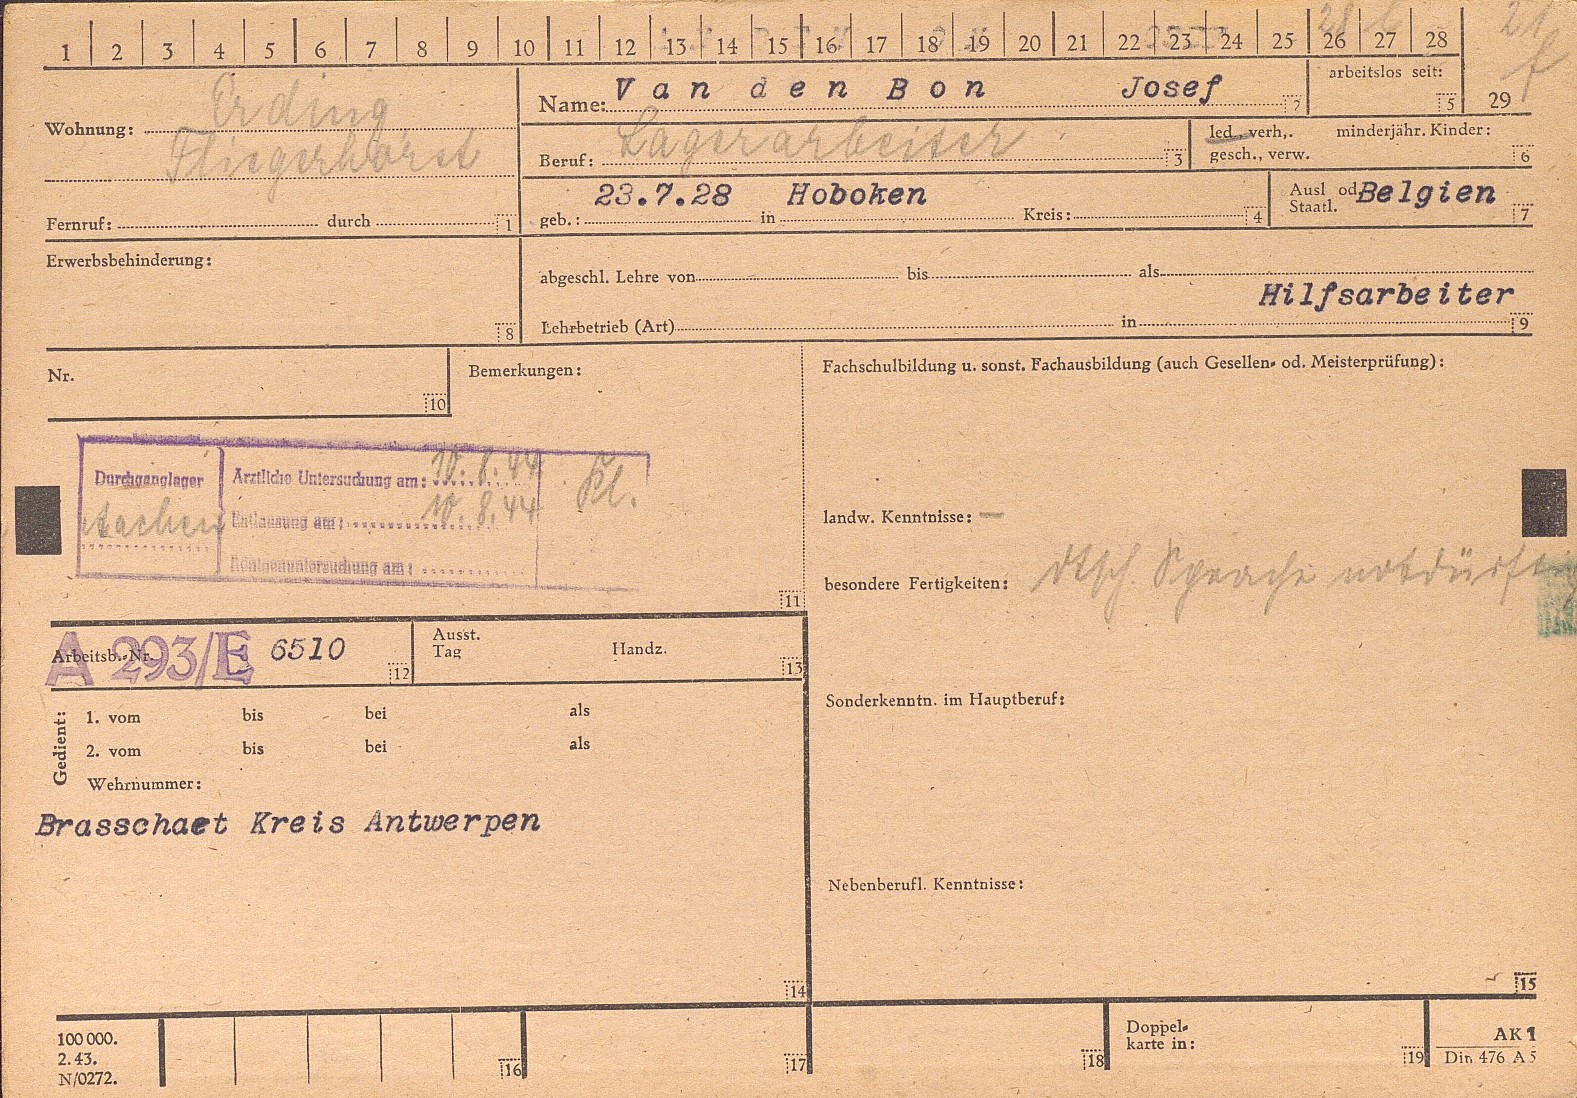 1 2 3 4 5 6 7 8 9 10 11 12 13 14 15 16 17 18 19 20 21 22 23 24 25 26 27 28
Wohnung: Erding
Fliegerhorst
Fernruf: durch 1
Name: Van den Bon Josef 2
arbeitslos seit: 5
29
Beruf: Lagerarbeiter 3
led. verh,. minderjähr. Kinder:
gesch., verw. 6
geb.: 23.7.28 in Hoboken Kreis: 4
Ausl od Belgien
Staatl. 7
Erwerbsbehinderung:
8
abgeschl. Lehre von bis als
Hilfsarbeiter
Lehrbetrieb (Art) in 9
Nr.
10
Bemerkungen:
Durchganglager
Ärztliche Untersuchung am: 10.8.44 Kl.
Entlassung am: 10.8.44
Röntgenuntersuchung am:
11
Fachschulbildung u. sonst. Fachausbildung (auch Gesellen- od. Meisterprüfung):
landw. Kenntnisse: —
besondere Fertigkeiten: dtsch. Sprache notdürftig
Sonderkenntn. im Hauptberuf:
Nebenberufl. Kenntnisse:
15
Arbeitsb.-Nr. A 293/E 6510 12
Ausst.
Tag Handz. 13
Gedient:
1. vom bis bei als
2. vom bis bei als
Wehrnummer:
Brasschaet Kreis Antwerpen
14
100 000.
2. 43.
N/0272.
16 17 18
Doppel-
karte in: 19
AK 1
Din 476 A 5